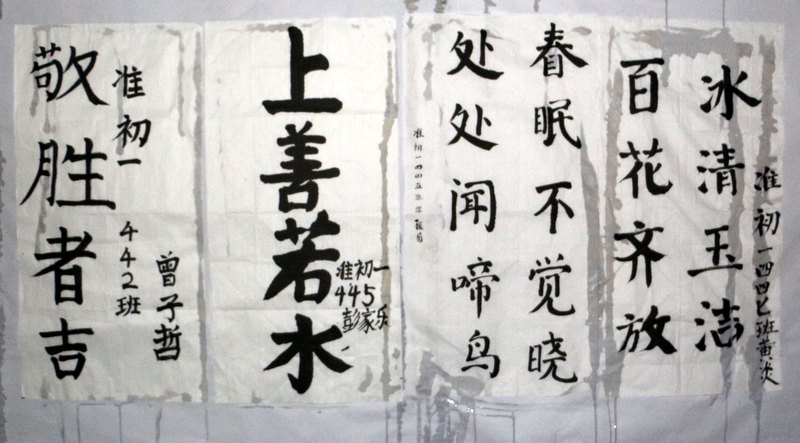 冰清玉洁
百花齐放
准初一四四七班黄炎
春眠不觉晓
处处闻啼鸟
准初一四四五
上善若水
准初一
445
彭家乐
敬胜者吉
准初一
442班
曾子哲